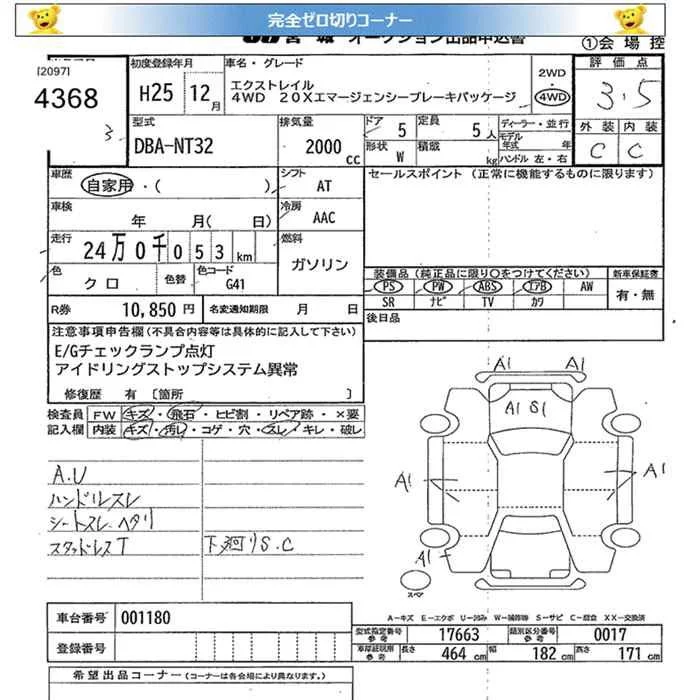 完全ゼロ切りコーナー
JU宮城 オークション出品申込書
①会場控
[2097]
4368
3
初度登録年月
H25 12月
車名・グレード
エクストレイル
4WD 20Xエマージェンシーブレーキパッケージ
2WD
・
4WD
評価点
3.5
外装 内装
C C
型式
DBA-NT32
排気量
2000cc
ドア 5
定員 5人
ディーラー・並行
形状 W
積載 kg
モデル年式 年
ハンドル 左・右
車歴
自家用・( )
シフト
AT
セールスポイント(正常に機能するものに限ります)
車検
年 月(日)
冷房
AAC
走行
24万0千053km
燃料
ガソリン
色
クロ
色替
色コード
G41
装備品(純正品に限り○をつけてください)
新車保証書
PS PW ABS エアB AW
SR ナビ TV カワ
有・無
R券 10,850円
名変通知期限 月 日
後日品
注意事項申告欄(不具合内容等は具体的に記入して下さい)
E/Gチェックランプ点灯
アイドリングストップシステム異常
修復歴 有 [箇所 ]
検査員記入欄
FW キズ・飛石・ヒビ割・リペア跡・×要
内装 キズ・汚レ・コゲ・穴・スレ・キレ・破レ
A.U
ハンドルスレ
シートスレ ヘタリ
スタッドレスT
下廻りS.C
A1 A1
A1 S1
A1
A1
A1
スペア
A-キズ E-エクボ U-凹み W-補修跡 S-サビ C-腐食 XX-交換済
車台番号 001180
登録番号
型式指定番号参考 17663
類別区分番号参考 0017
車庫証明用参考 長さ 464cm 幅 182cm 高さ 171cm
希望出品コーナー(コーナーは各会場により異なります。)